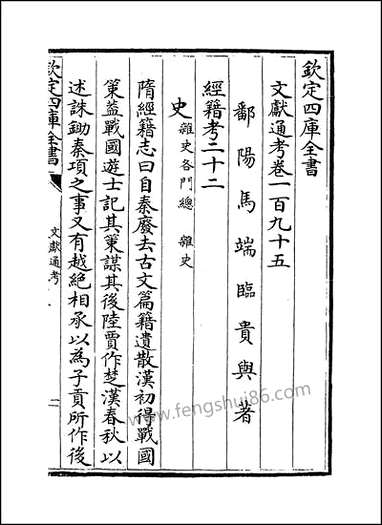 欽定四庫全書
文獻通考卷一百九十五
鄱陽馬端臨貴與著
經籍考二十二
史 雜史各門總 雜史
隋經籍志曰自秦廢去古文篇籍遺散漢初得戰國
策蓋戰國遊士記其策謀其後陸賈作楚漢春秋以
述誅鋤秦項之事又有越絕相承以為子貢所作後
欽定四庫全書
文獻通考
一
www.fengshui86.com